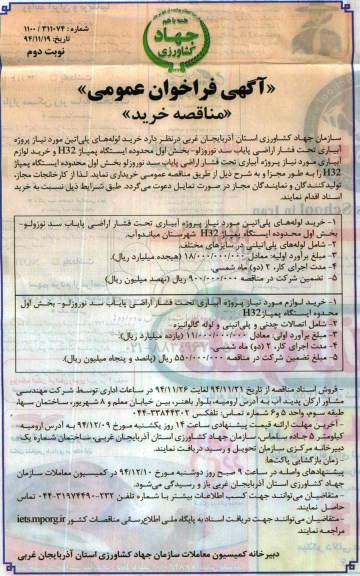 شماره : ۳۱۱۰۷۴ / ۱۱۰۰
تاریخ: ۹۴/۱۱/۱۹
نوبت دوم
همه با هم
جهاد
کشاورزی
«آگهی فراخوان عمومی»
«مناقصه خرید»
سازمان جهاد کشاورزی استان آذربایجان غربی در نظر دارد خرید لوله‌های پلی‌اتیلن مورد نیاز پروژه
آبیاری تحت فشار اراضی پایاب سد نوروزلو- بخش اول محدوده ایستگاه پمپاژ H32 و خرید لوازم
آبیاری مورد نیاز پروژه آبیاری تحت فشار اراضی پایاب سد نوروزلو بخش اول محدوده ایستگاه پمپاژ
H32 را به طور مجزا و به شرح ذیل از طریق مناقصه عمومی خریداری نماید. لذا از کارخانجات مجاز،
تولیدکنندگان و نمایندگان مجاز در صورت تمایل دعوت می‌گردد. طبق شرایط ذیل نسبت به خرید
اسناد اقدام نمایند.
۱- خرید لوله‌های پلی‌اتیلن مورد نیاز پروژه آبیاری تحت فشار اراضی پایاب سد نوروزلو-
بخش اول محدوده ایستگاه پمپاژ H32 شهرستان میاندوآب.
۲- شامل لوله‌های پلی‌اتیلنی در سایزهای مختلف.
۳- مبلغ برآورد اولیه: معادل ۱۸/۰۰۰/۰۰۰/۰۰۰ (هیجده میلیارد ریال).
۴- مدت اجرای کار، ۲ (دو) ماه شمسی.
۵- تضمین شرکت در مناقصه ۹۰۰/۰۰۰/۰۰۰ ریال (نهصد میلیون ریال).
۱- خرید لوازم مورد نیاز پروژه آبیاری تحت فشار اراضی پایاب سد نوروزلو- بخش اول
محدوده ایستگاه پمپاژ H32
۲- شامل اتصالات چدنی و پلی‌اتیلنی و لوله گالوانیزه.
۳- مبلغ برآورد اولی: معادل ۱۱/۰۰۰/۰۰۰/۰۰۰ (یازده میلیارد ریال).
۴- مدت اجرای کار، ۲ (دو) ماه شمسی.
۵- مبلغ تضمین شرکت در مناقصه ۵۵۰/۰۰۰/۰۰۰ ریال (پانصد و پنجاه میلیون ریال).
فروش اسناد مناقصه از تاریخ ۹۴/۱۱/۲۱ لغایت ۹۴/۱۱/۲۶ در ساعات اداری توسط شرکت مهندسی
مشاور ارکان پدید آب به آدرس ارومیه، بلوار باهنر، بین خیابان معلم و ۸ شهریور، ساختمان سها،
طبقه سوم، واحد ۵ و ۶ شماره تماس: تلفکس ۳۳۸۴۴۳۰۲-۰۴۴
- آخرین مهلت ارائه قیمت پیشنهادی ساعت ۱۴ روز یکشنبه مورخ ۹۴/۱۲/۰۹ به آدرس ارومیه-
کیلومتر ۵ جاده سلماس، سازمان جهاد کشاورزی استان آذربایجان غربی، ساختمان شماره یک-
دبیرخانه مرکزی سازمان تحویل و رسید دریافت نمایند.
- زمان بازگشایی پاکت‌ها
پیشنهادهای واصله در ساعت ۹ صبح روز دوشنبه مورخ ۹۴/۱۲/۱۰ در کمیسیون معاملات سازمان
جهاد کشاورزی استان آذربایجان غربی باز و رسیدگی می‌شود.
- متقاضیان می‌توانند جهت کسب اطلاعات بیشتر با شماره تلفن ۲۳۲-۳۱۹۷۴۴۹۰-۰۴۴ تماس
حاصل نمایند.
- متقاضیان می‌توانند جهت دریافت اسناد به پایگاه ملی اطلاع‌رسانی مناقصات کشور iets.mporg.ir
مراجعه نمایند.
دبیرخانه کمیسیون معاملات سازمان جهاد کشاورزی استان آذربایجان غربی